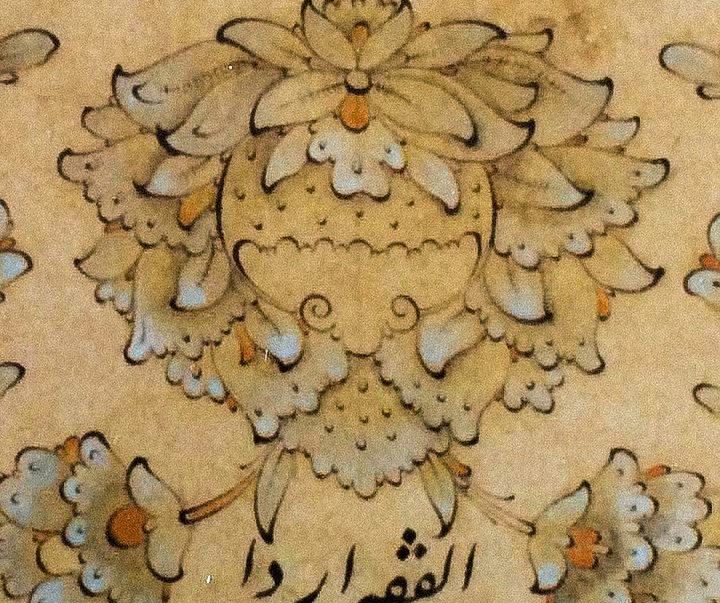 الفقير اردا